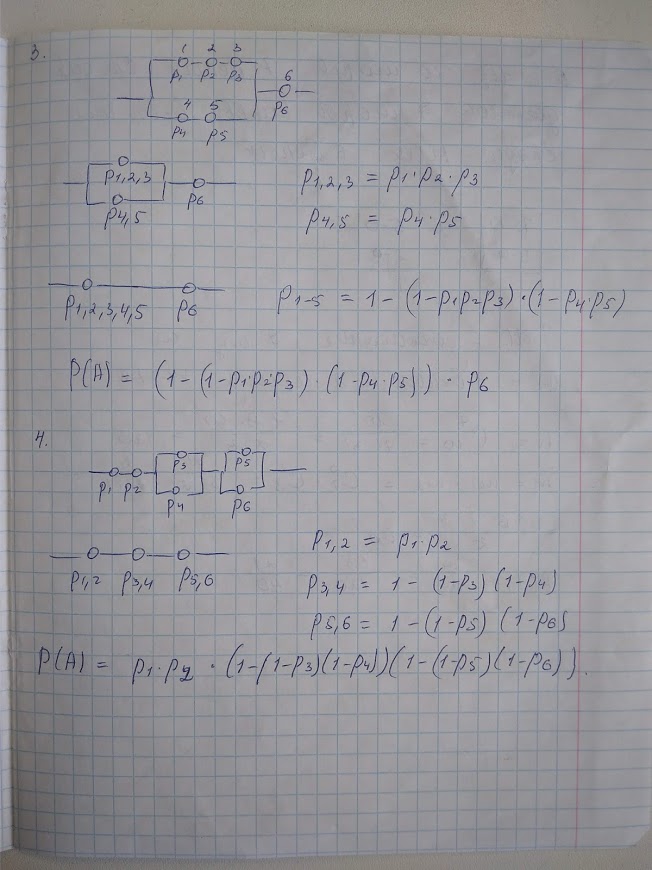 3.
1 2 3
p1 p2 p3
6
p6
4 5
p4 p5
p1,2,3
p4,5
p6
p1,2,3 = p1·p2·p3
p4,5 = p4·p5
p1,2,3,4,5 p6
p1-5 = 1-(1-p1p2p3)·(1-p4·p5)
P(A) = (1-(1-p1·p2·p3)·(1-p4·p5))·p6
4.
p1 p2
p3
p4
p5
p6
p1,2 p3,4 p5,6
p1,2 = p1·p2
p3,4 = 1-(1-p3)(1-p4)
p5,6 = 1-(1-p5)(1-p6)
P(A) = p1·p2·(1-(1-p3)(1-p4))(1-(1-p5)(1-p6)).